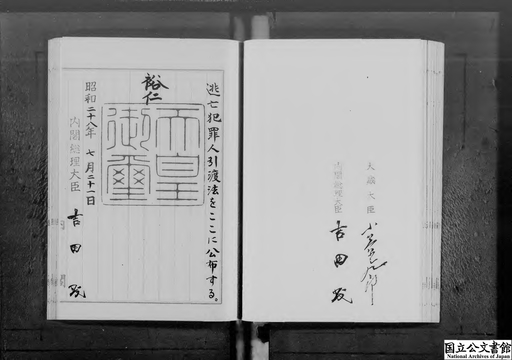 逃亡犯罪人引渡法をここに公布する。
裕仁
天皇御璽
昭和二十八年七月二十一日
内閣総理大臣 吉田茂
大蔵大臣
内閣総理大臣 吉田茂
国立公文書館
National Archives of Japan